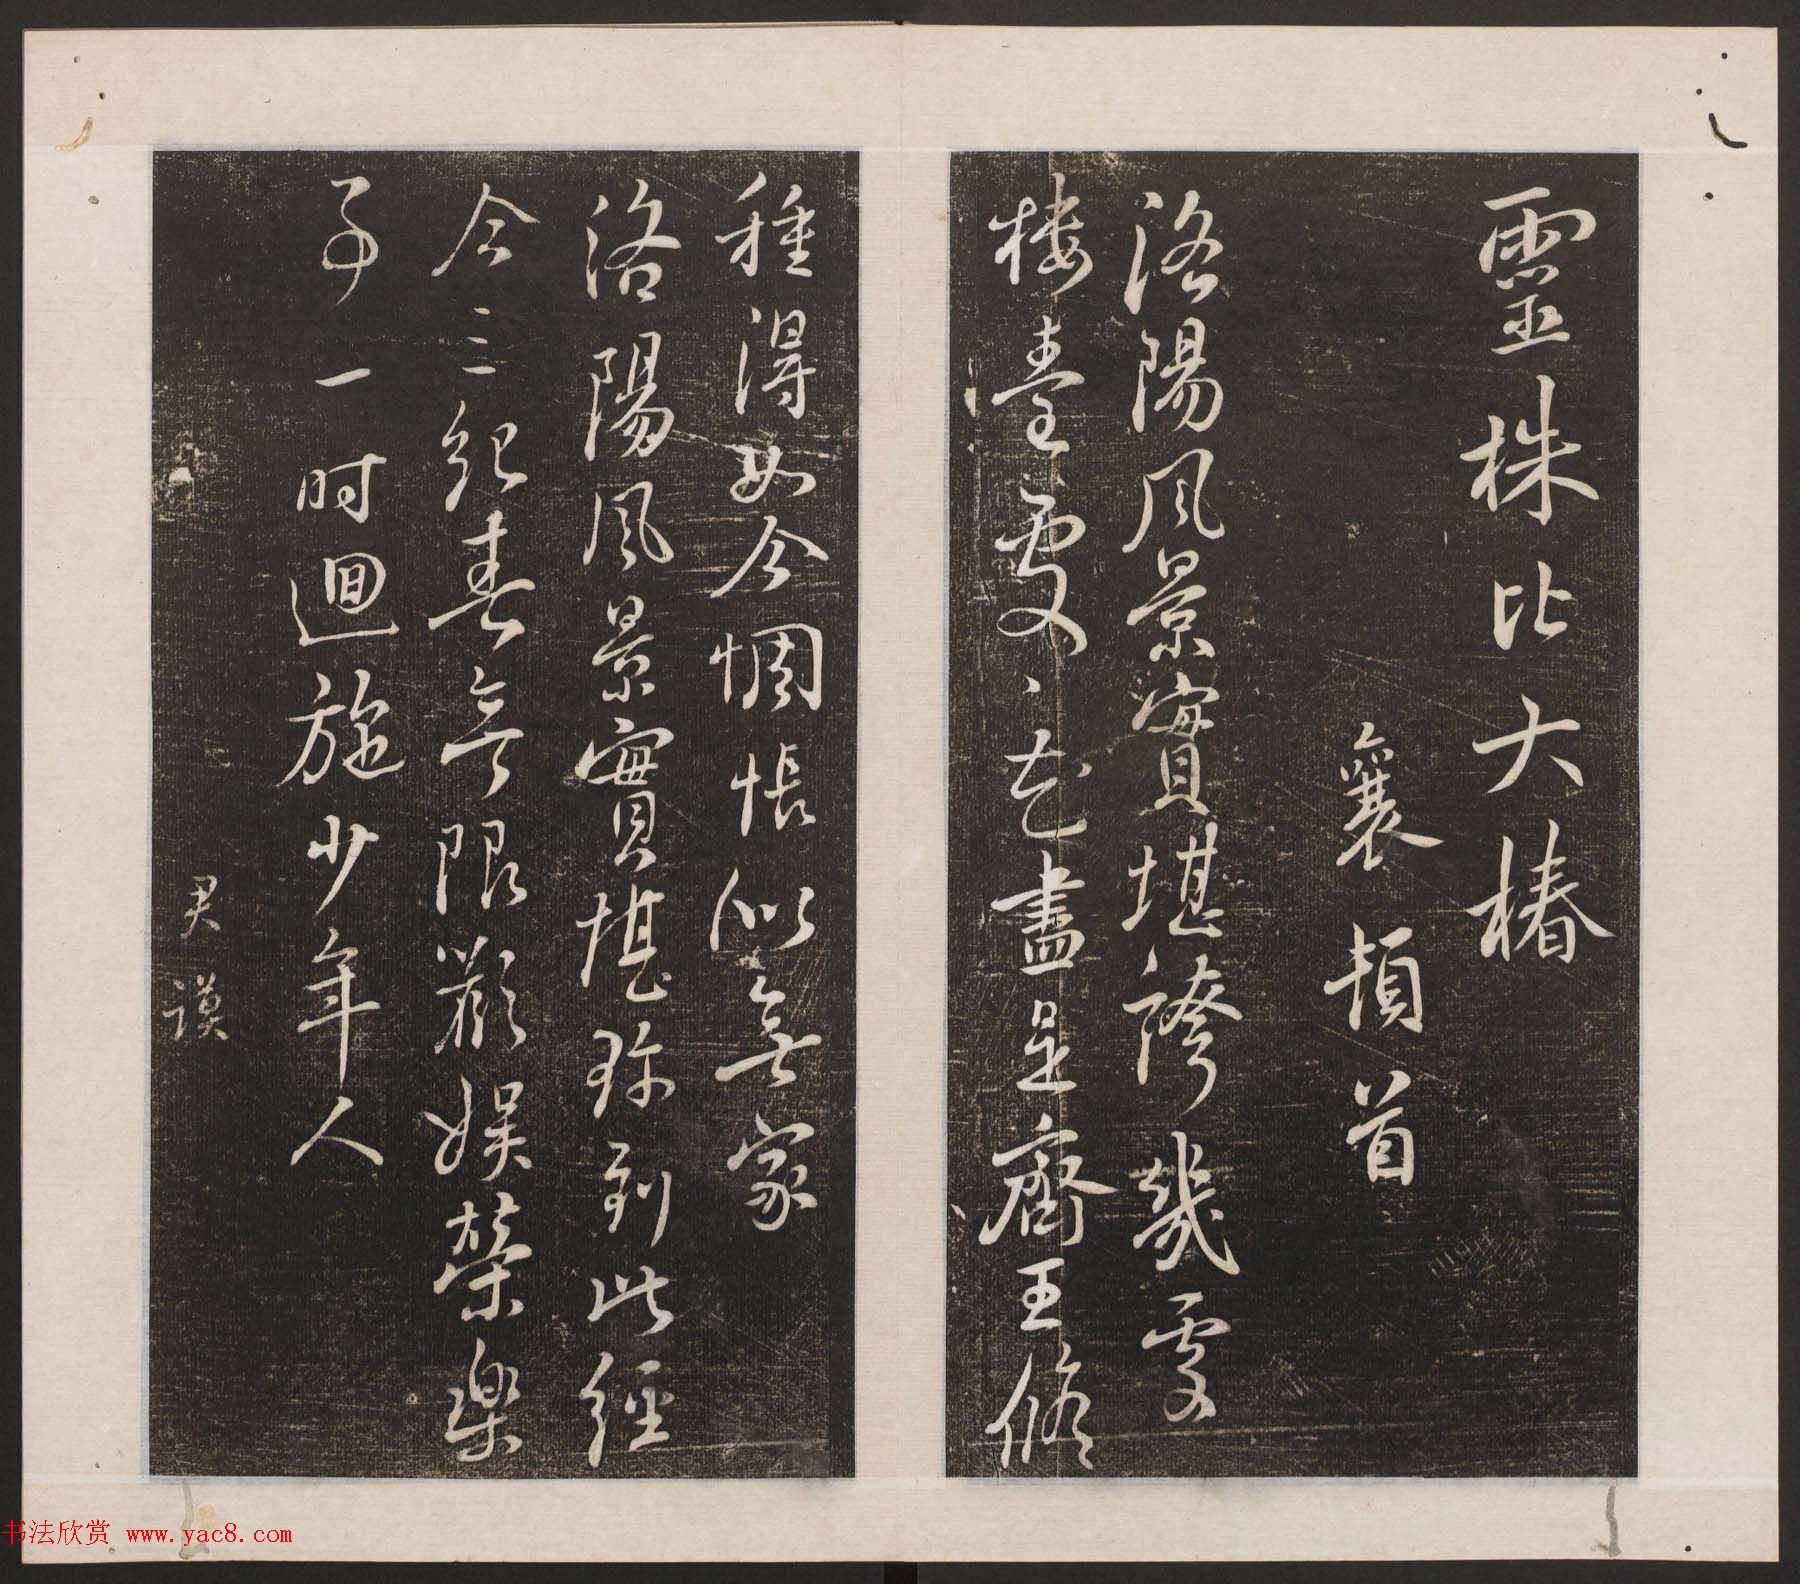 靈株比大椿
襄頓首
洛陽風景實堪誇幾處
樓臺處〻花盡是齊王修
種得如今惆悵似無家
洛陽風景實堪珍到此經
今三紀春無限歡娛榮樂
事一時迴施少年人
君謨
书法欣赏 www.yac8.com